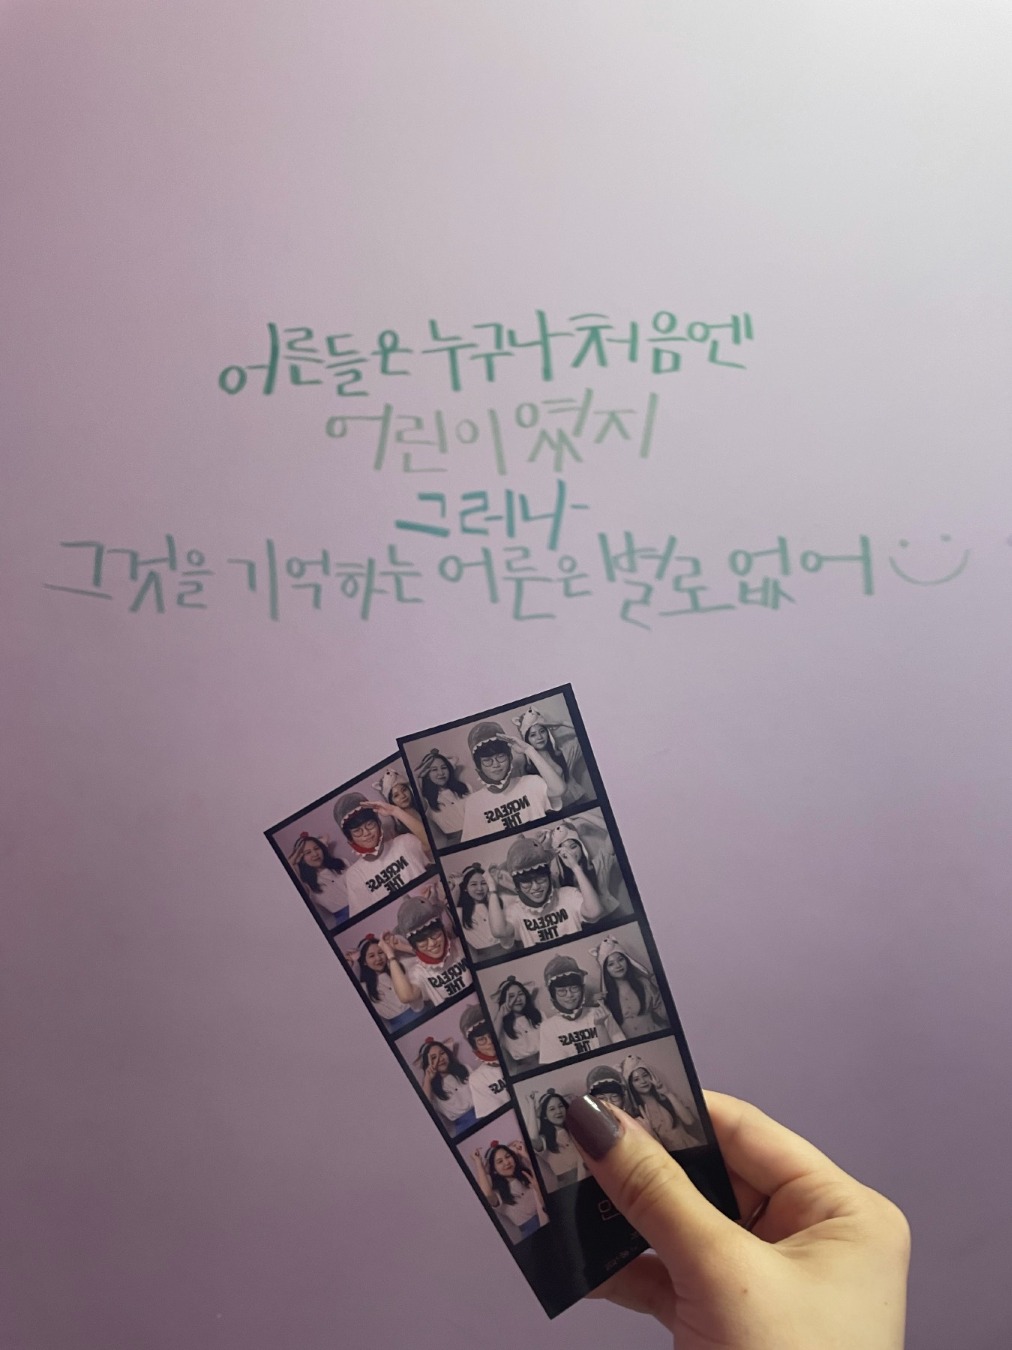 어른들은 누구나 처음엔
어린이였지
그러나
그것을 기억하는 어른은 별로 없어
INCREASE
THE
INCREASE
THE
INCREASE
THE
INCREASE
THE
INCREASE
THE